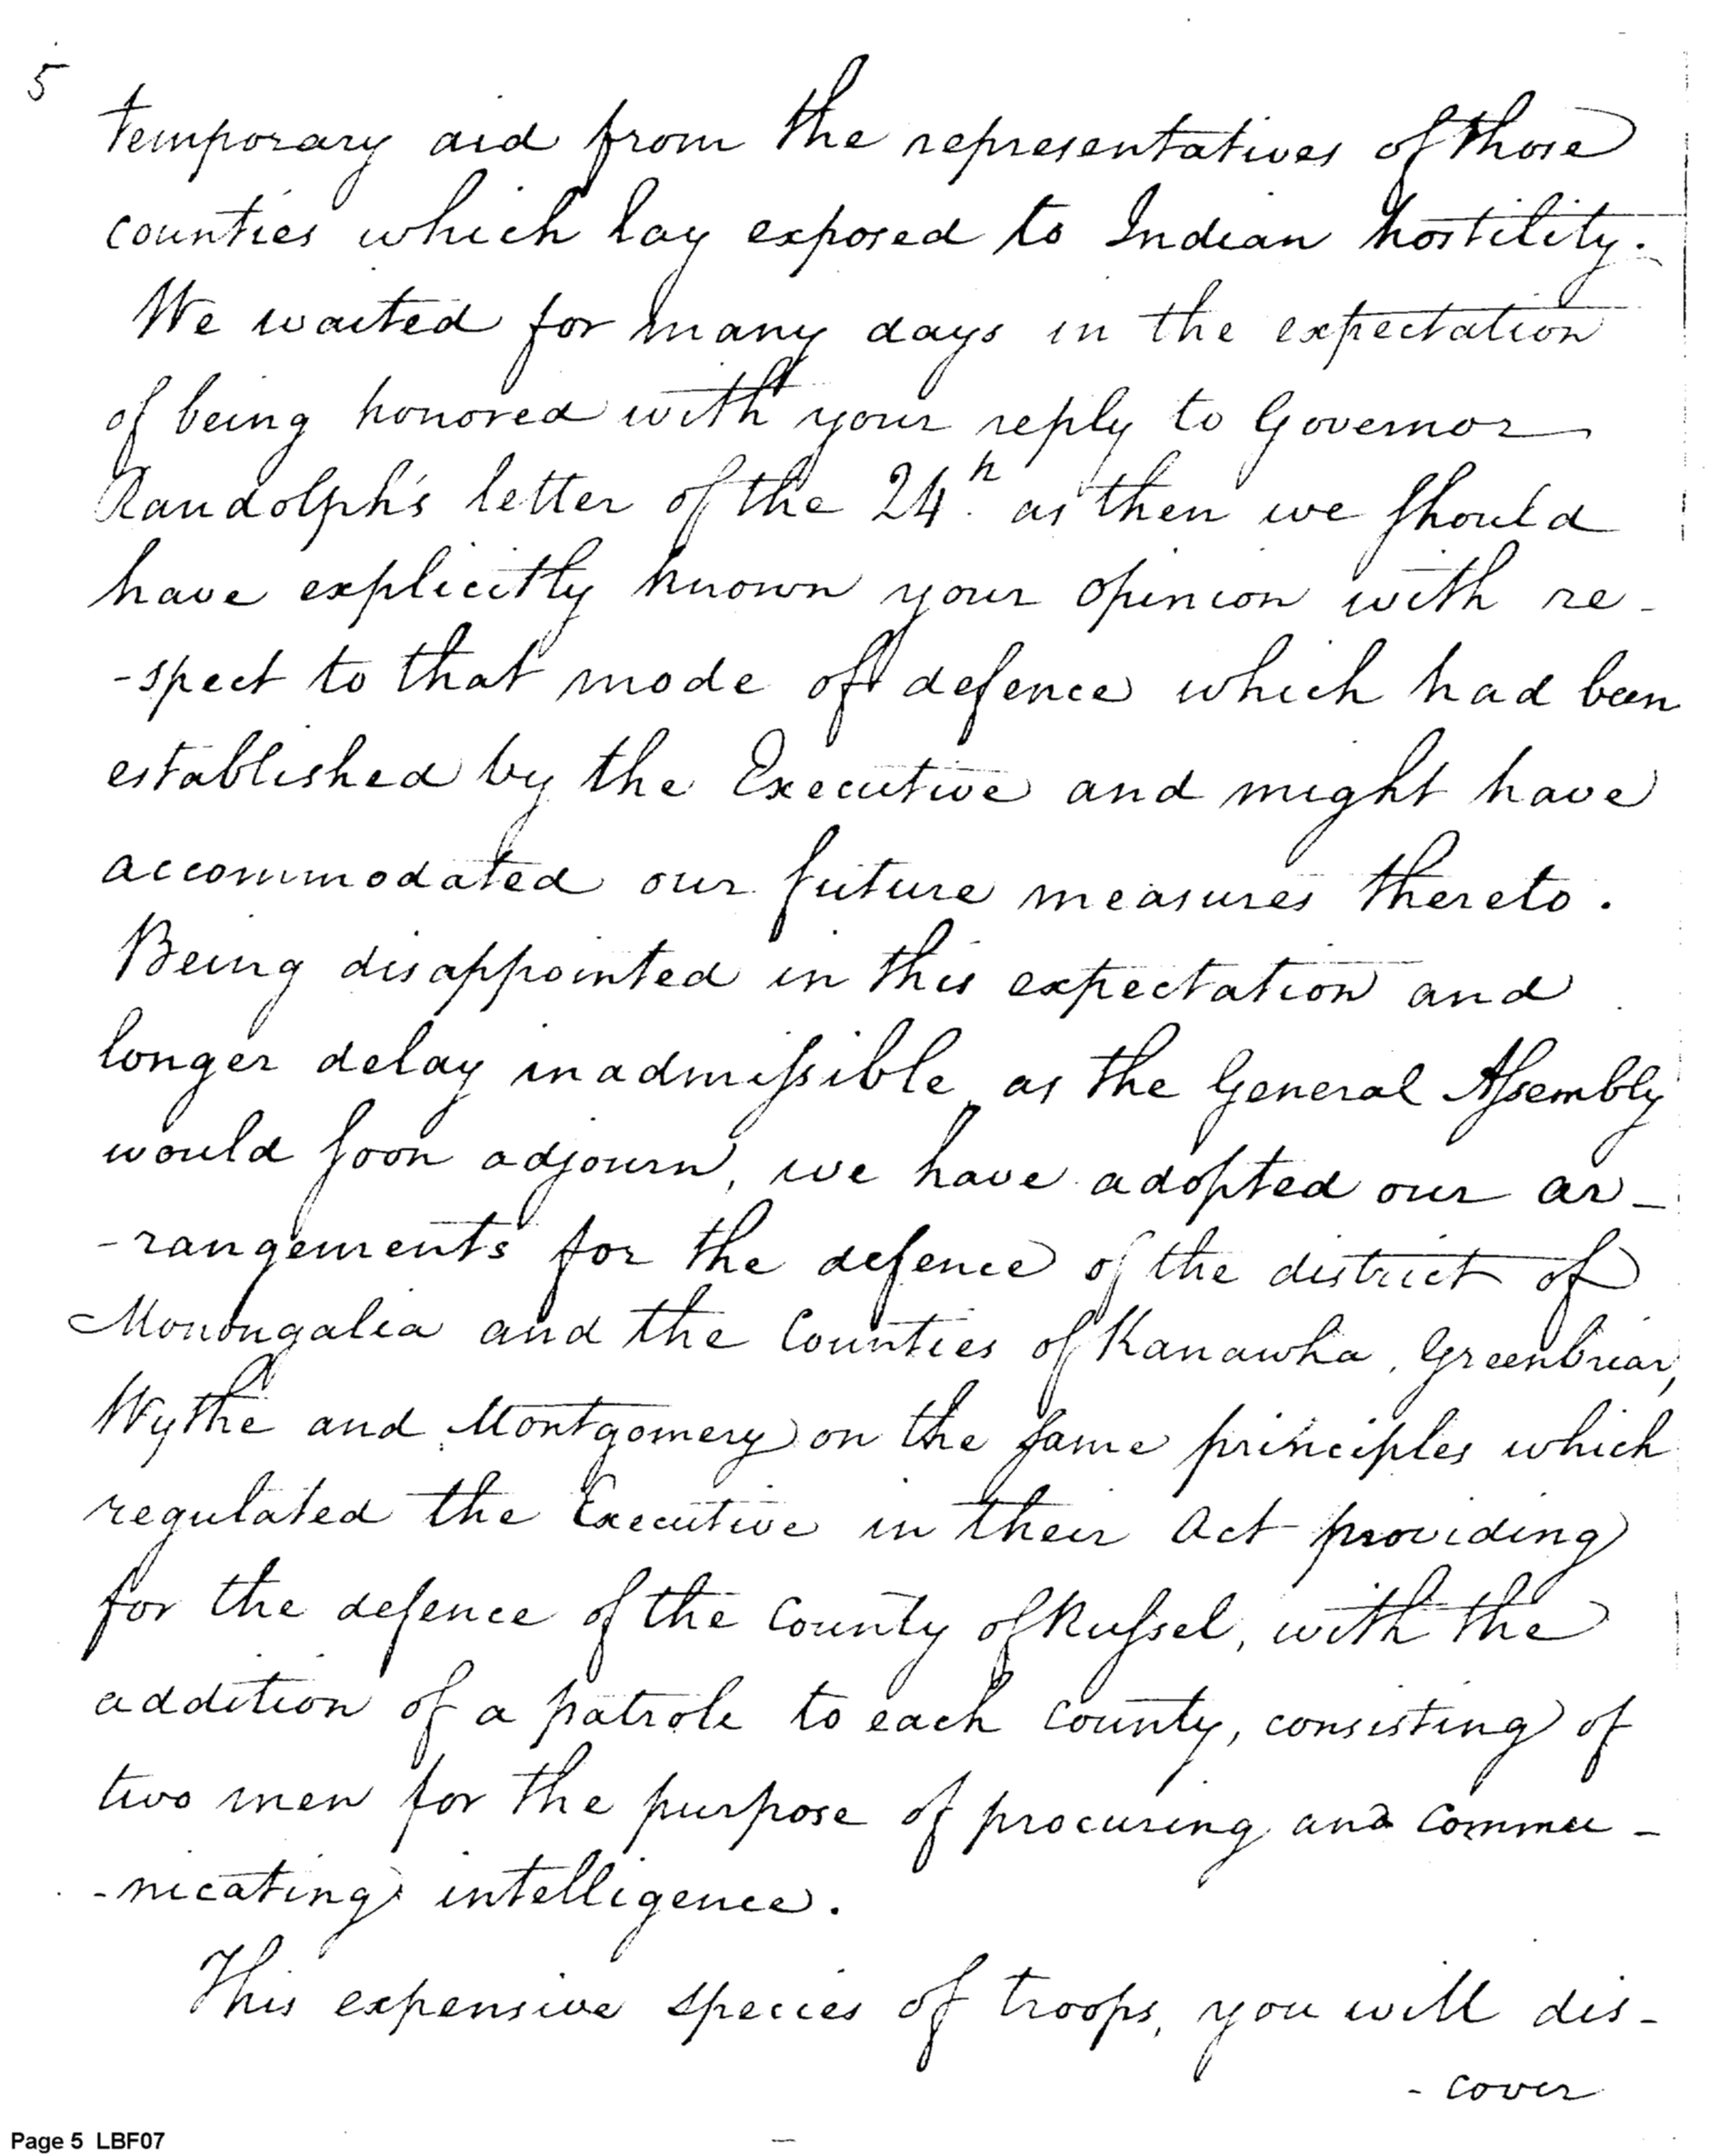 5
temporary aid from the representatives of those
counties which lay exposed to Indian hostility.
We waited for many days in the expectation
of being honored with your reply to Governor
Randolph's letter of the 24th. as then we should
have explicitly known your opinion with re-
-spect to that mode of defence which had been
established by the Executive and might have
accommodated our future measures thereto.
Being disappointed in this expectation and
longer delay inadmissible, as the General Assembly
would soon adjourn, we have adopted our ar-
-rangements for the defence of the district of
Monongalia and the Counties of Kanawha, Greenbriar,
Wythe and Montgomery on the same principles which
regulated the Executive in their Act providing
for the defence of the County of Russel, with the
addition of a patrole to each county, consisting of
two men for the purpose of procuring and commu-
-nicating intelligence.
This expensive species of troops, you will dis-
-cover
Page 5 LBF07